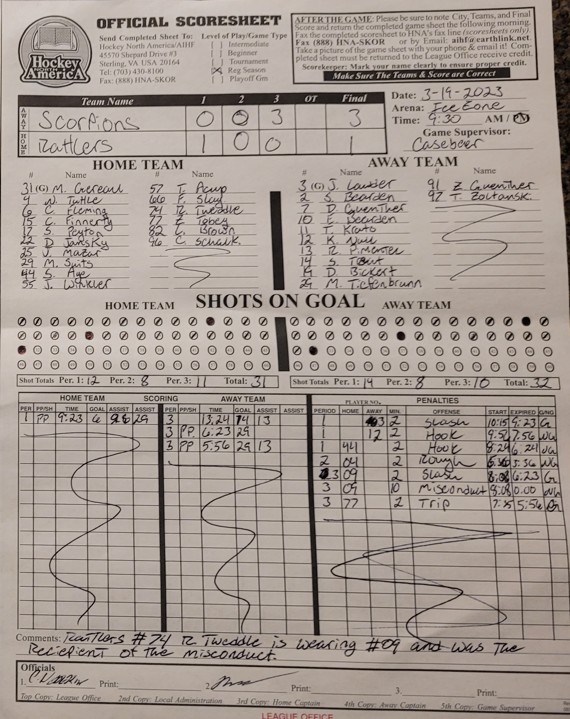 Hockey
AMERICA
OFFICIAL SCORESHEET
Send Completed Sheet To:
Hockey North America/AIHF
45570 Shepard Drive #3
Sterling, VA USA 20164
Tel: (703) 430-8100
Fax: (888) HNA-SKOR
Level of Play/Game Type
[ ] Intermediate
[ ] Beginner
[ ] Tournament
Reg Season
[ ] Playoff Grp
AFTER THE GAME: Please be sure to note City, Teams, and Final
Score and return the completed game sheet the following morning.
Fax the completed scoresheet to HNA's fax line (scoresheets only)
Fax (888) HNA-SKOR or by Email: aihf@earthlink.net
Take a picture of the game sheet with your phone & email it! Com-
pleted sheet must be returned to the League Office receive credit.
Scorekeeper: Mark your name clearly to ensure proper credit.
Make Sure The Teams & Score are Correct
Team Name 1 2 3 OT Final
AWAY Scorpions 0 0 3 3
HOME Rattlers 1 0 0 1
Date: 3-19-2023
Arena: Ice Zone
Time: 9:30 AM / PM
Game Supervisor:
Casebeer
HOME TEAM
# Name # Name
31 (G) M. Gereau 57 T. Pcup
9 N. Tuttle 66 F. Slay
6 C. Fleming 74 R. Tweddle
15 C. Finnerty 77 E. Tobey
17 S. Peyton 82 C. Brown
22 D Jansky 96 C. Schawk.
25 J. Mazar
29 M. Suits
44 S. Age
55 J. Winkler
AWAY TEAM
# Name # Name
3 (G) J. Lauder 91 Z Guenther
2 S. Bearden 97 T. Zoltanski.
7 D Guenther
10 E. Bearden
11 T. Krato
12 K. Null
13 R. P.Master
14 S. Tout
19 D. Bickert
29 M. Tichenbrunn
HOME TEAM SHOTS ON GOAL AWAY TEAM
Shot Totals Per. 1: 12 Per. 2: 8 Per. 3: 11 Total: 31
Shot Totals Per. 1: 14 Per. 2: 8 Per. 3: 10 Total: 32
HOME TEAM SCORING AWAY TEAM
PER PP/SH TIME GOAL ASSIST ASSIST PER PP/SH TIME GOAL ASSIST ASSIST
1 PP 9:23 6 96 29
3 13:24 14 13
3 PP 6:23 29
3 PP 5:56 29 13
PLAYER NO. PENALTIES
PERIOD HOME AWAY MIN. OFFENSE START EXPIRED G/NG
1 2 Slash 10:15 9:23 G
1 12 2 Hook 9:56 7:56 NG
1 44 2 Hook 8:24 6:24 NG
2 04 2 Rough 5:36 NG
3 09 2 Slash 8:08 6:23 G
3 09 10 Misconduct 8:08 0:00 NG
3 77 2 Trip 7:35 5:56 G
Comments: Rattlers #74 R. Tweddle is wearing #09 and was the
Recipient of the misconduct.
Officials
1. Print: 2. Print: 3. Print:
Top Copy: League Office 2nd Copy: Local Administration 3rd Copy: Home Captain 4th Copy: Away Captain 5th Copy: Game Supervisor
LEAGUE OFFICE